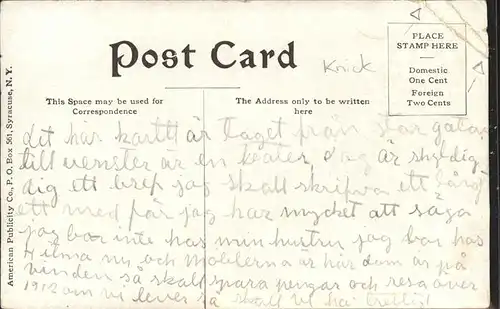 Post Card
Knick
PLACE
STAMP HERE
Domestic
One Cent
Foreign
Two Cents
This Space may be used for
Correspondence
The Address only to be written
here
American Publicity Co., P. O. Box 561, Syracuse, N. Y.
det har kartt är taget från stor gatan
till venster är en teater Jag är skyldig
dig ett brep jag skall skripva ett långt
ett med för jag har mycket att säga
jag bor inte hos min hustru jag bor hos
Hilma nu och möblerna är här dom är på
vinden så skall spara pengar och resa över
1912 om vi lever så skall vi ha trevligt